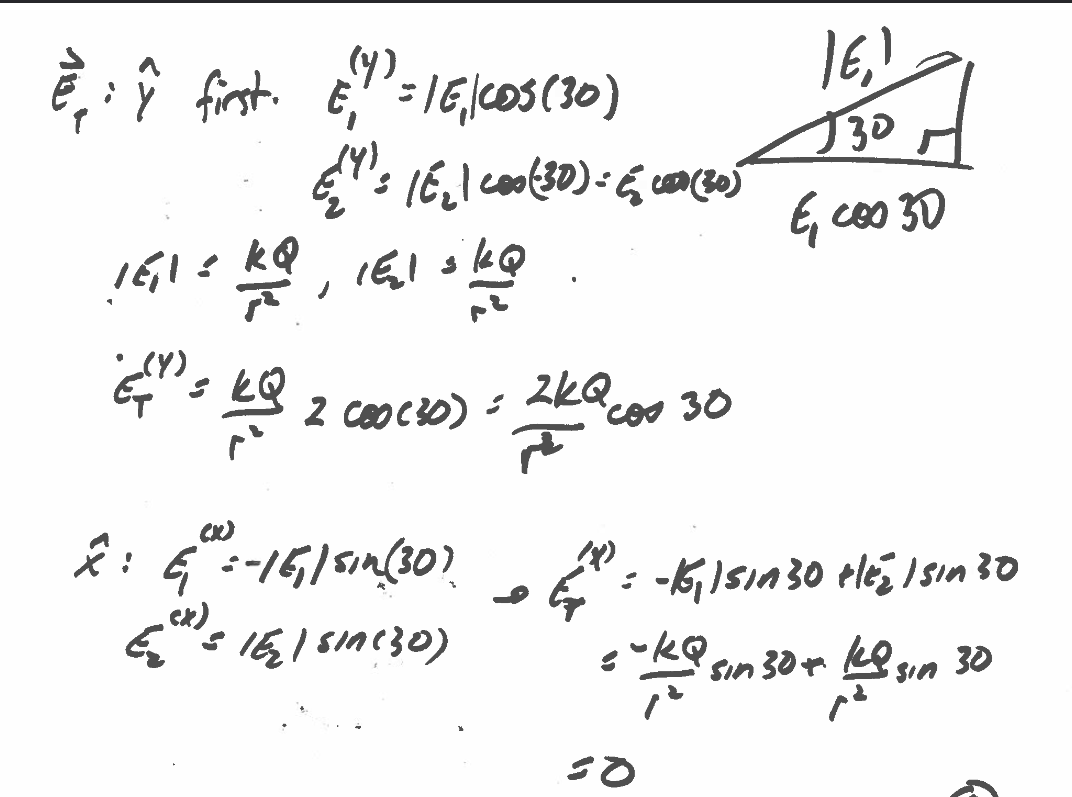 E⃗_T : ŷ first. E_1^(y) = |E_1|cos(30)
|E_1|
30
E_2^(y) = |E_2| cos(-30) = E_2 cos(30)
E_1 cos 30
|E_1| = kQ/r^2 , |E_2| = kQ/r^2 .
E_T^(y) = kQ/r^2 2 cos(30) = 2kQ/r^2 cos 30
x̂ : E_1^(x) = -|E_1| sin(30) → E_T^(x) = -|E_1| sin 30 + |E_2| sin 30
E_2^(x) = |E_2| sin(30)
= -kQ/r^2 sin 30 + kQ/r^2 sin 30
= 0